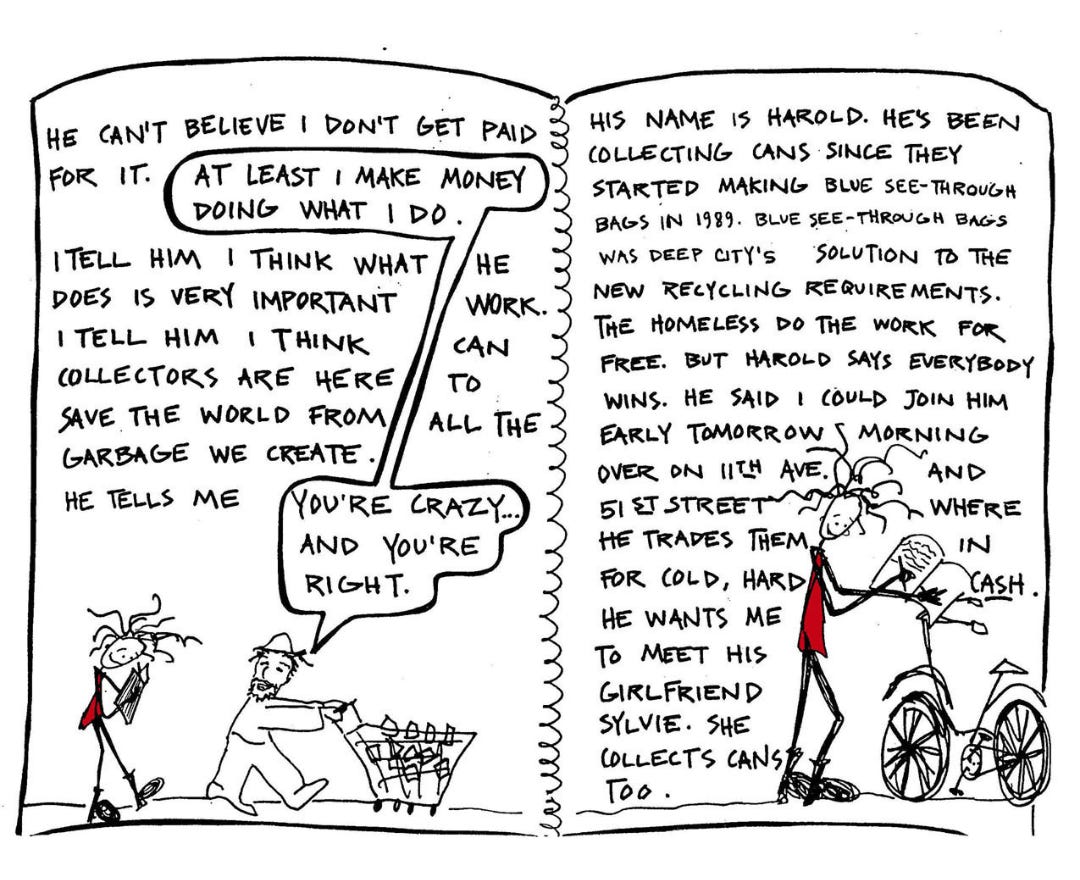 HE CAN'T BELIEVE I DON'T GET PAID
FOR IT.
AT LEAST I MAKE MONEY
DOING WHAT I DO.
I TELL HIM I THINK WHAT HE
DOES IS VERY IMPORTANT WORK.
I TELL HIM I THINK CAN
COLLECTORS ARE HERE TO
SAVE THE WORLD FROM ALL THE
GARBAGE WE CREATE.
HE TELLS ME
YOU'RE CRAZY...
AND YOU'RE
RIGHT.
HIS NAME IS HAROLD. HE'S BEEN
COLLECTING CANS SINCE THEY
STARTED MAKING BLUE SEE-THROUGH
BAGS IN 1989. BLUE SEE-THROUGH BAGS
WAS DEEP CITY'S SOLUTION TO THE
NEW RECYCLING REQUIREMENTS.
THE HOMELESS DO THE WORK FOR
FREE. BUT HAROLD SAYS EVERYBODY
WINS. HE SAID I COULD JOIN HIM
EARLY TOMORROW MORNING
OVER ON 11TH AVE. AND
51 ST STREET WHERE
HE TRADES THEM IN
FOR COLD, HARD CASH.
HE WANTS ME
TO MEET HIS
GIRLFRIEND
SYLVIE. SHE
COLLECTS CANS
TOO.